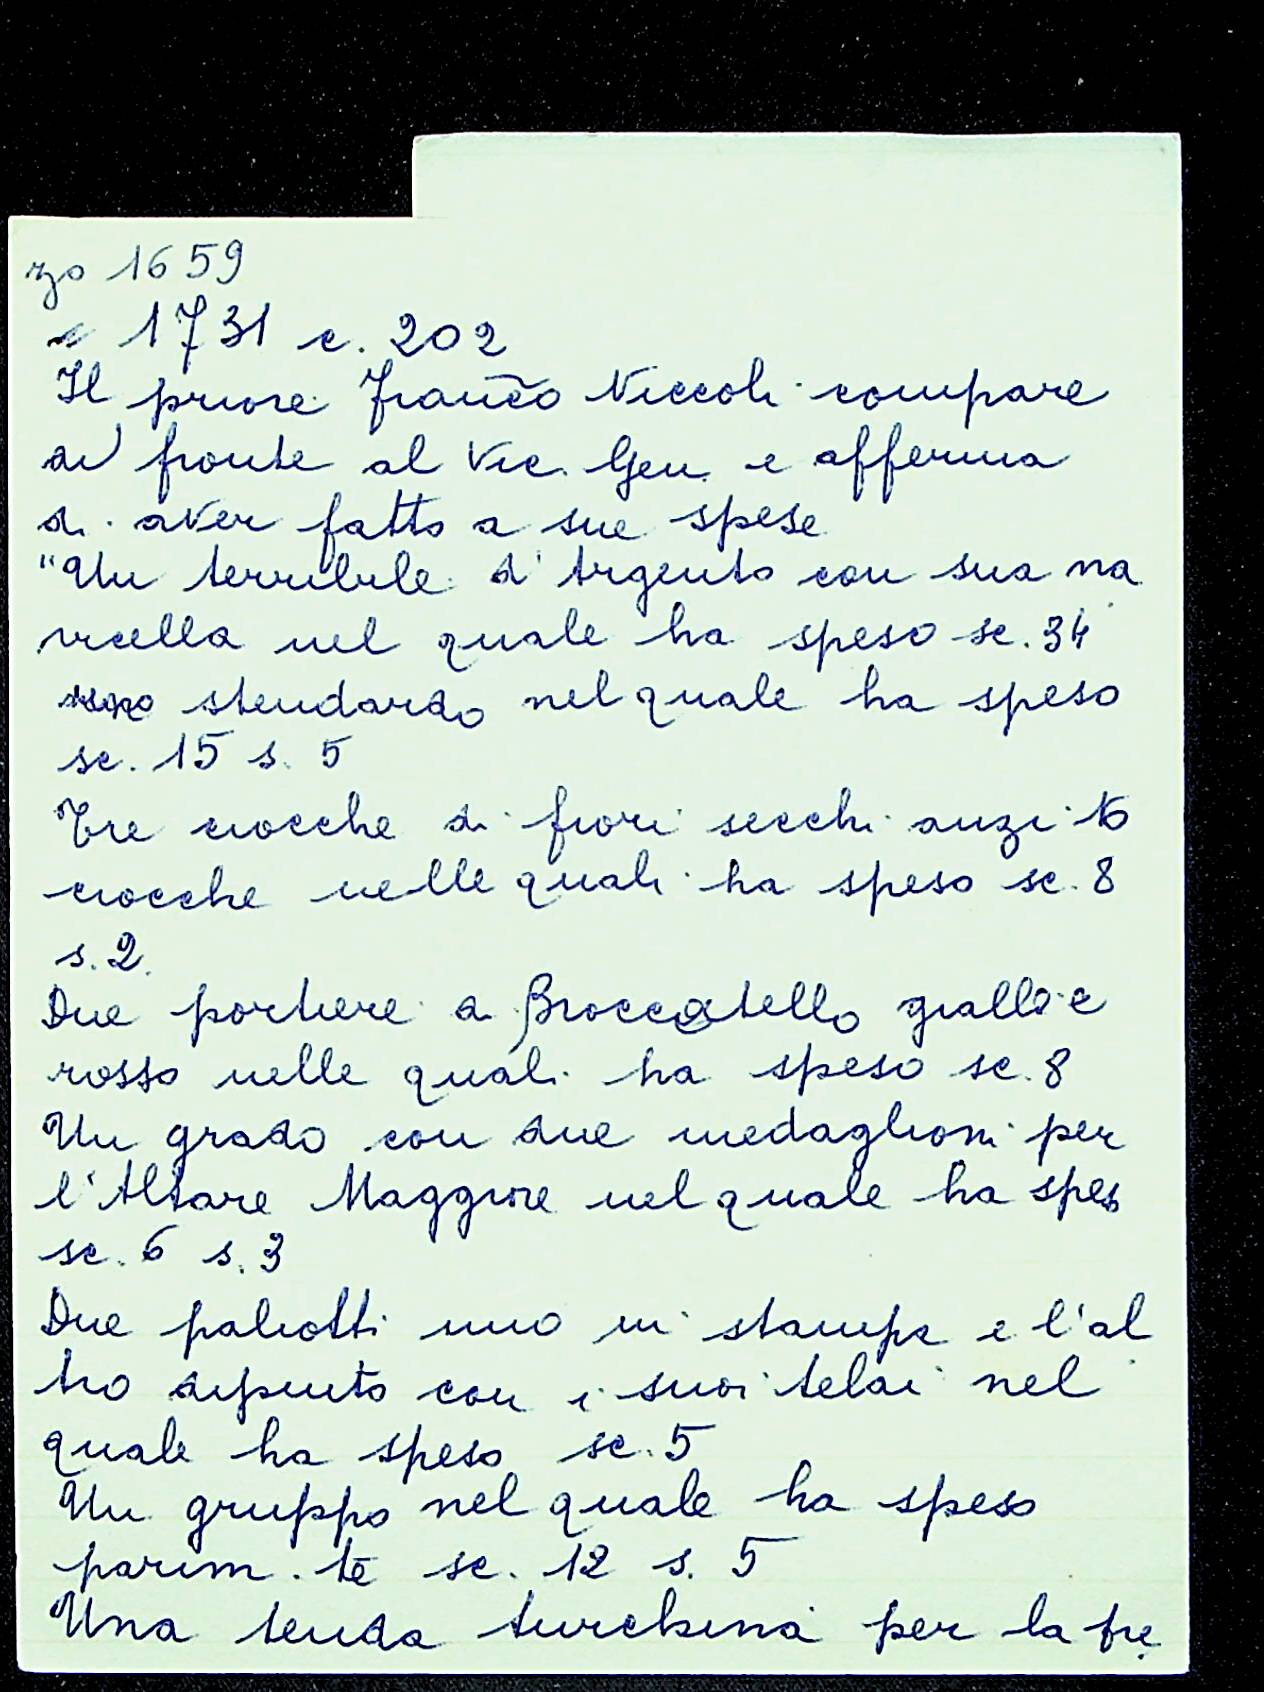 zo 1659
1731 c. 202
Il priore Franc̃o Niccoli compare
di fronte al Vic. Gen. e afferma
di aver fatto a sue spese
"Un terribile d'Argento con sua na
vicella nel quale ha speso sc. 34
stendardo nel quale ha speso
sc. 15 s. 5
Tre ciocche di fiori secchi anzi 16
ciocche nelle quali ha speso sc. 8
s. 2.
Due portiere a Broccatello giallo e
rosso nelle quali ha speso sc. 8
Un grado con due medaglioni per
l'Altare Maggiore nel quale ha speso
sc. 6 s. 3
Due paliotti uno in stampa e l'al
tro dipinto con i suoi telai nel
quale ha speso sc. 5
Un gruppo nel quale ha speso
parim. te sc. 12 s. 5
Una tenda turchina per la fre